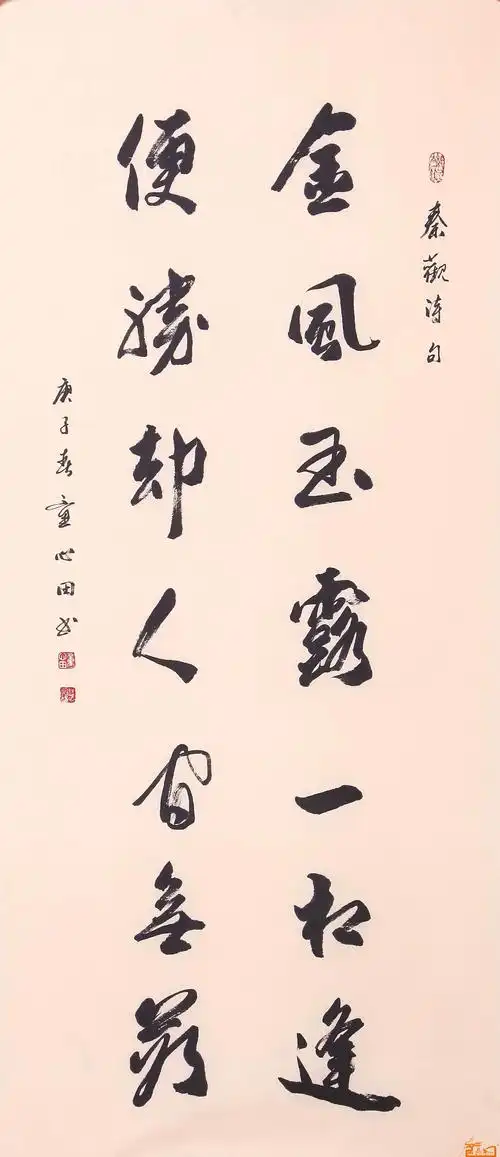 秦觀诗句
金風玉露一相逢
便勝却人间無數
庚子春童心田书